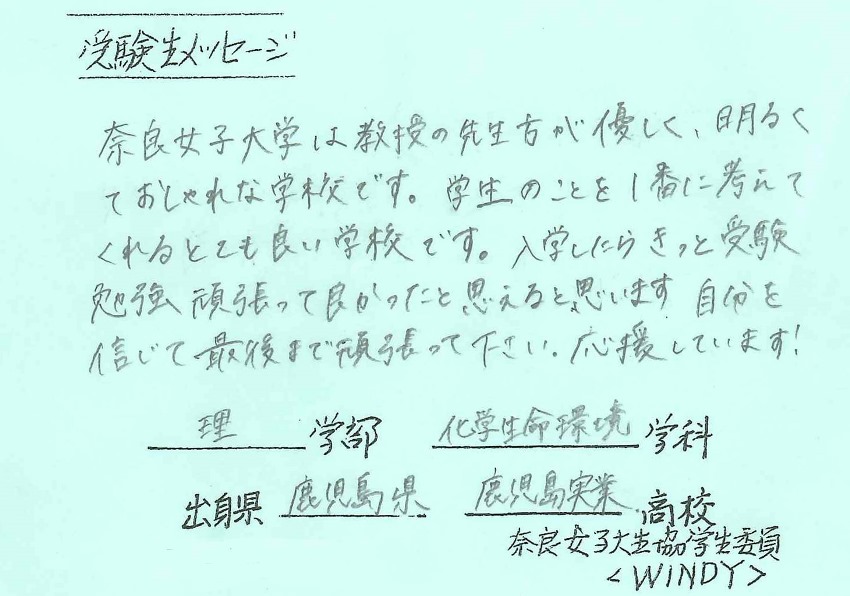 受験生メッセージ
奈良女子大学は教授の先生方が優しく、明るく
ておしゃれな学校です。学生のことを1番に考えて
くれるとても良い学校です。入学したらきっと受験
勉強頑張って良かったと思えると思います 自分を
信じて最後まで頑張って下さい。応援しています!
理 学部 化学生命環境 学科
出身県 鹿児島県 鹿児島実業 高校
奈良女子大生協学生委員
<WINDY>